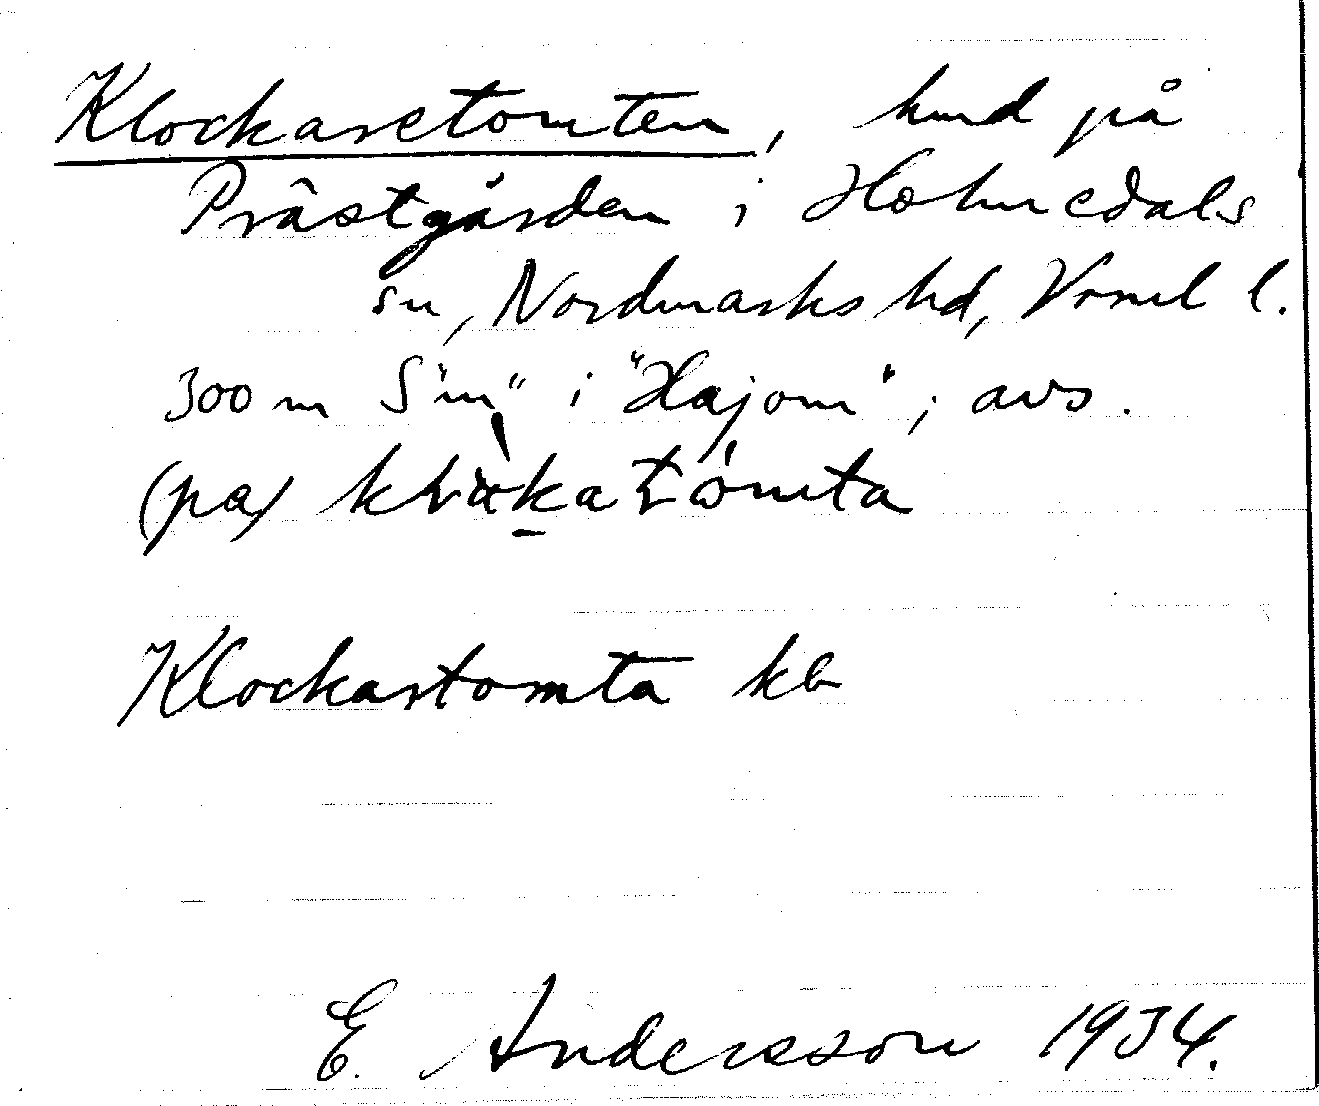 Klockaretomten, hmd på
Prästgården i Holmedals
sn, Nordmarks hd, Vrml l.
300 m S "in" i "Hajom"; avs.
(pa) klɔ̀katɷ̀mta
Klockartomta kb
E. Andersson 1934.